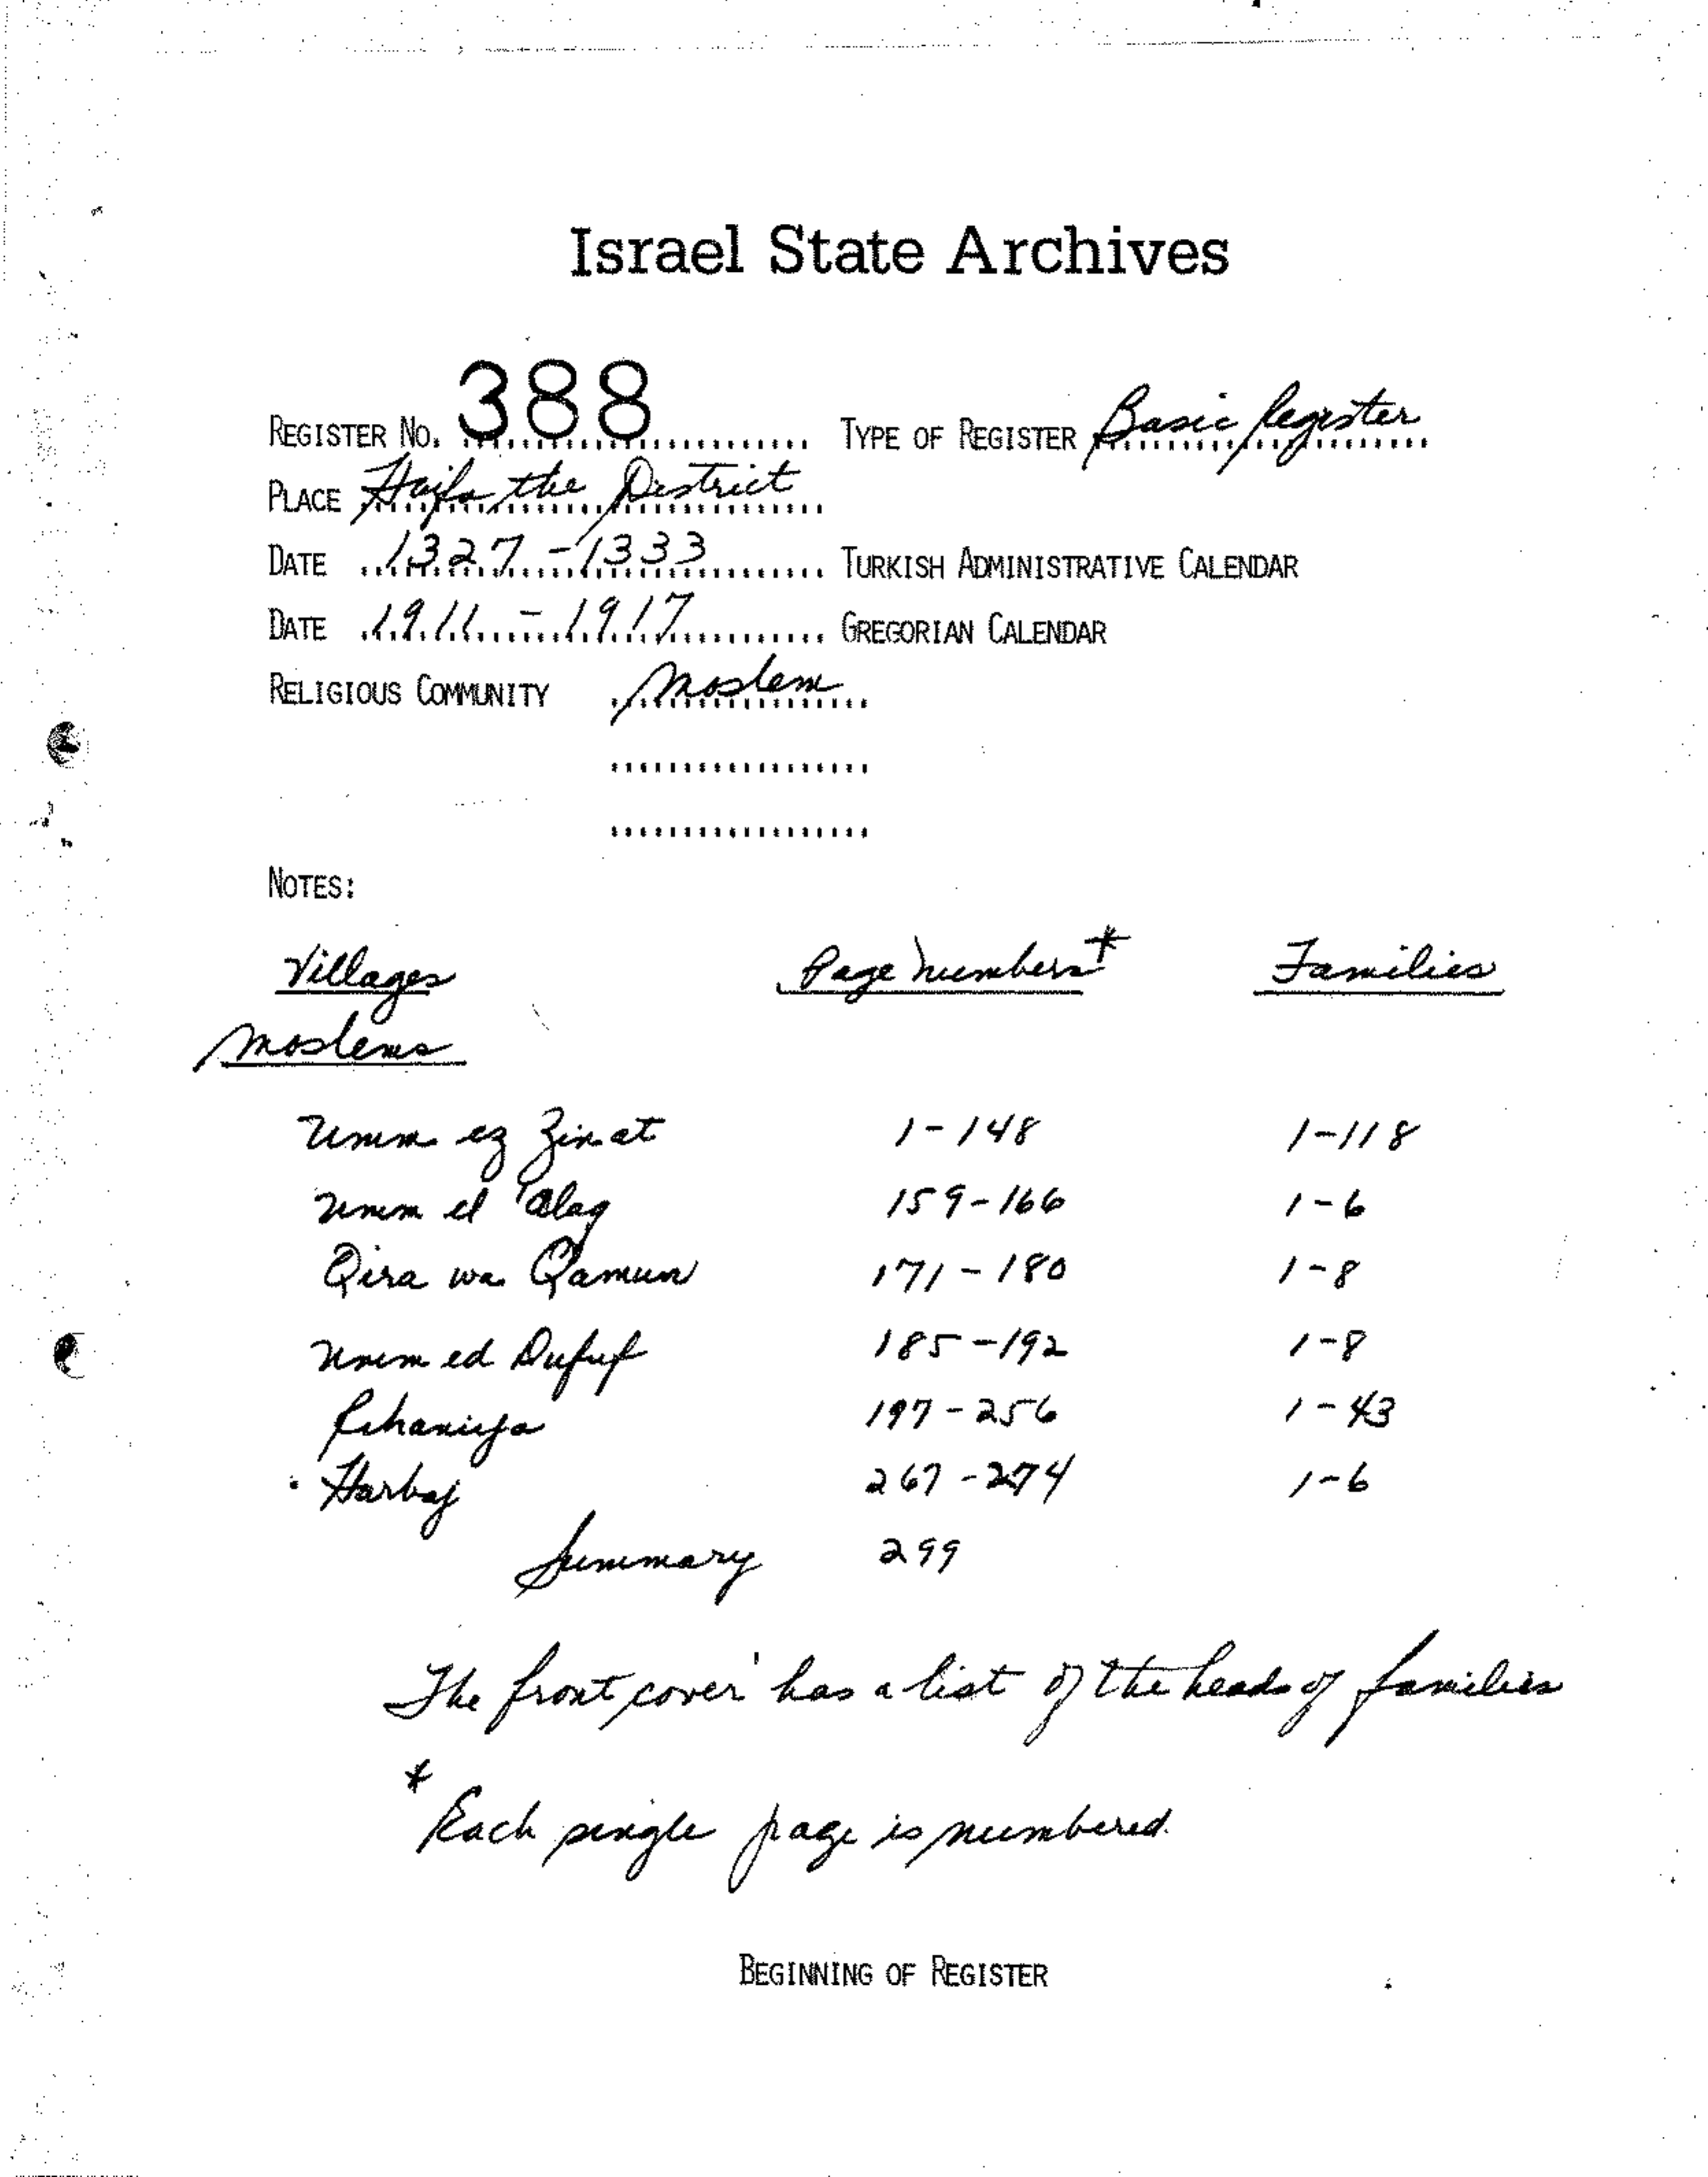 Israel State Archives
REGISTER NO. 388 TYPE OF REGISTER Basic Register
PLACE Haifa the District
DATE 1327-1333 TURKISH ADMINISTRATIVE CALENDAR
DATE 1911-1917 GREGORIAN CALENDAR
RELIGIOUS COMMUNITY Moslem
NOTES:
Villages Page Numbers* Families
Moslems
Umm ez Zinat 1-148 1-118
Umm el 'Alaq 159-166 1-6
Qira wa Qamun 171-180 1-8
Umm ed Dufuf 185-192 1-8
Rihaniya 197-256 1-43
Harbaj 267-274 1-6
Summary 299
The front cover has a list of the heads of families
* Each single page is numbered.
BEGINNING OF REGISTER